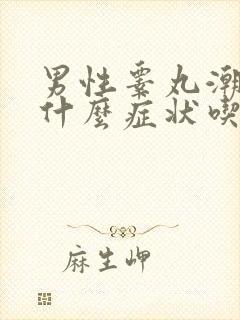 男性睾丸潮
什麼症状喫
麻生岬